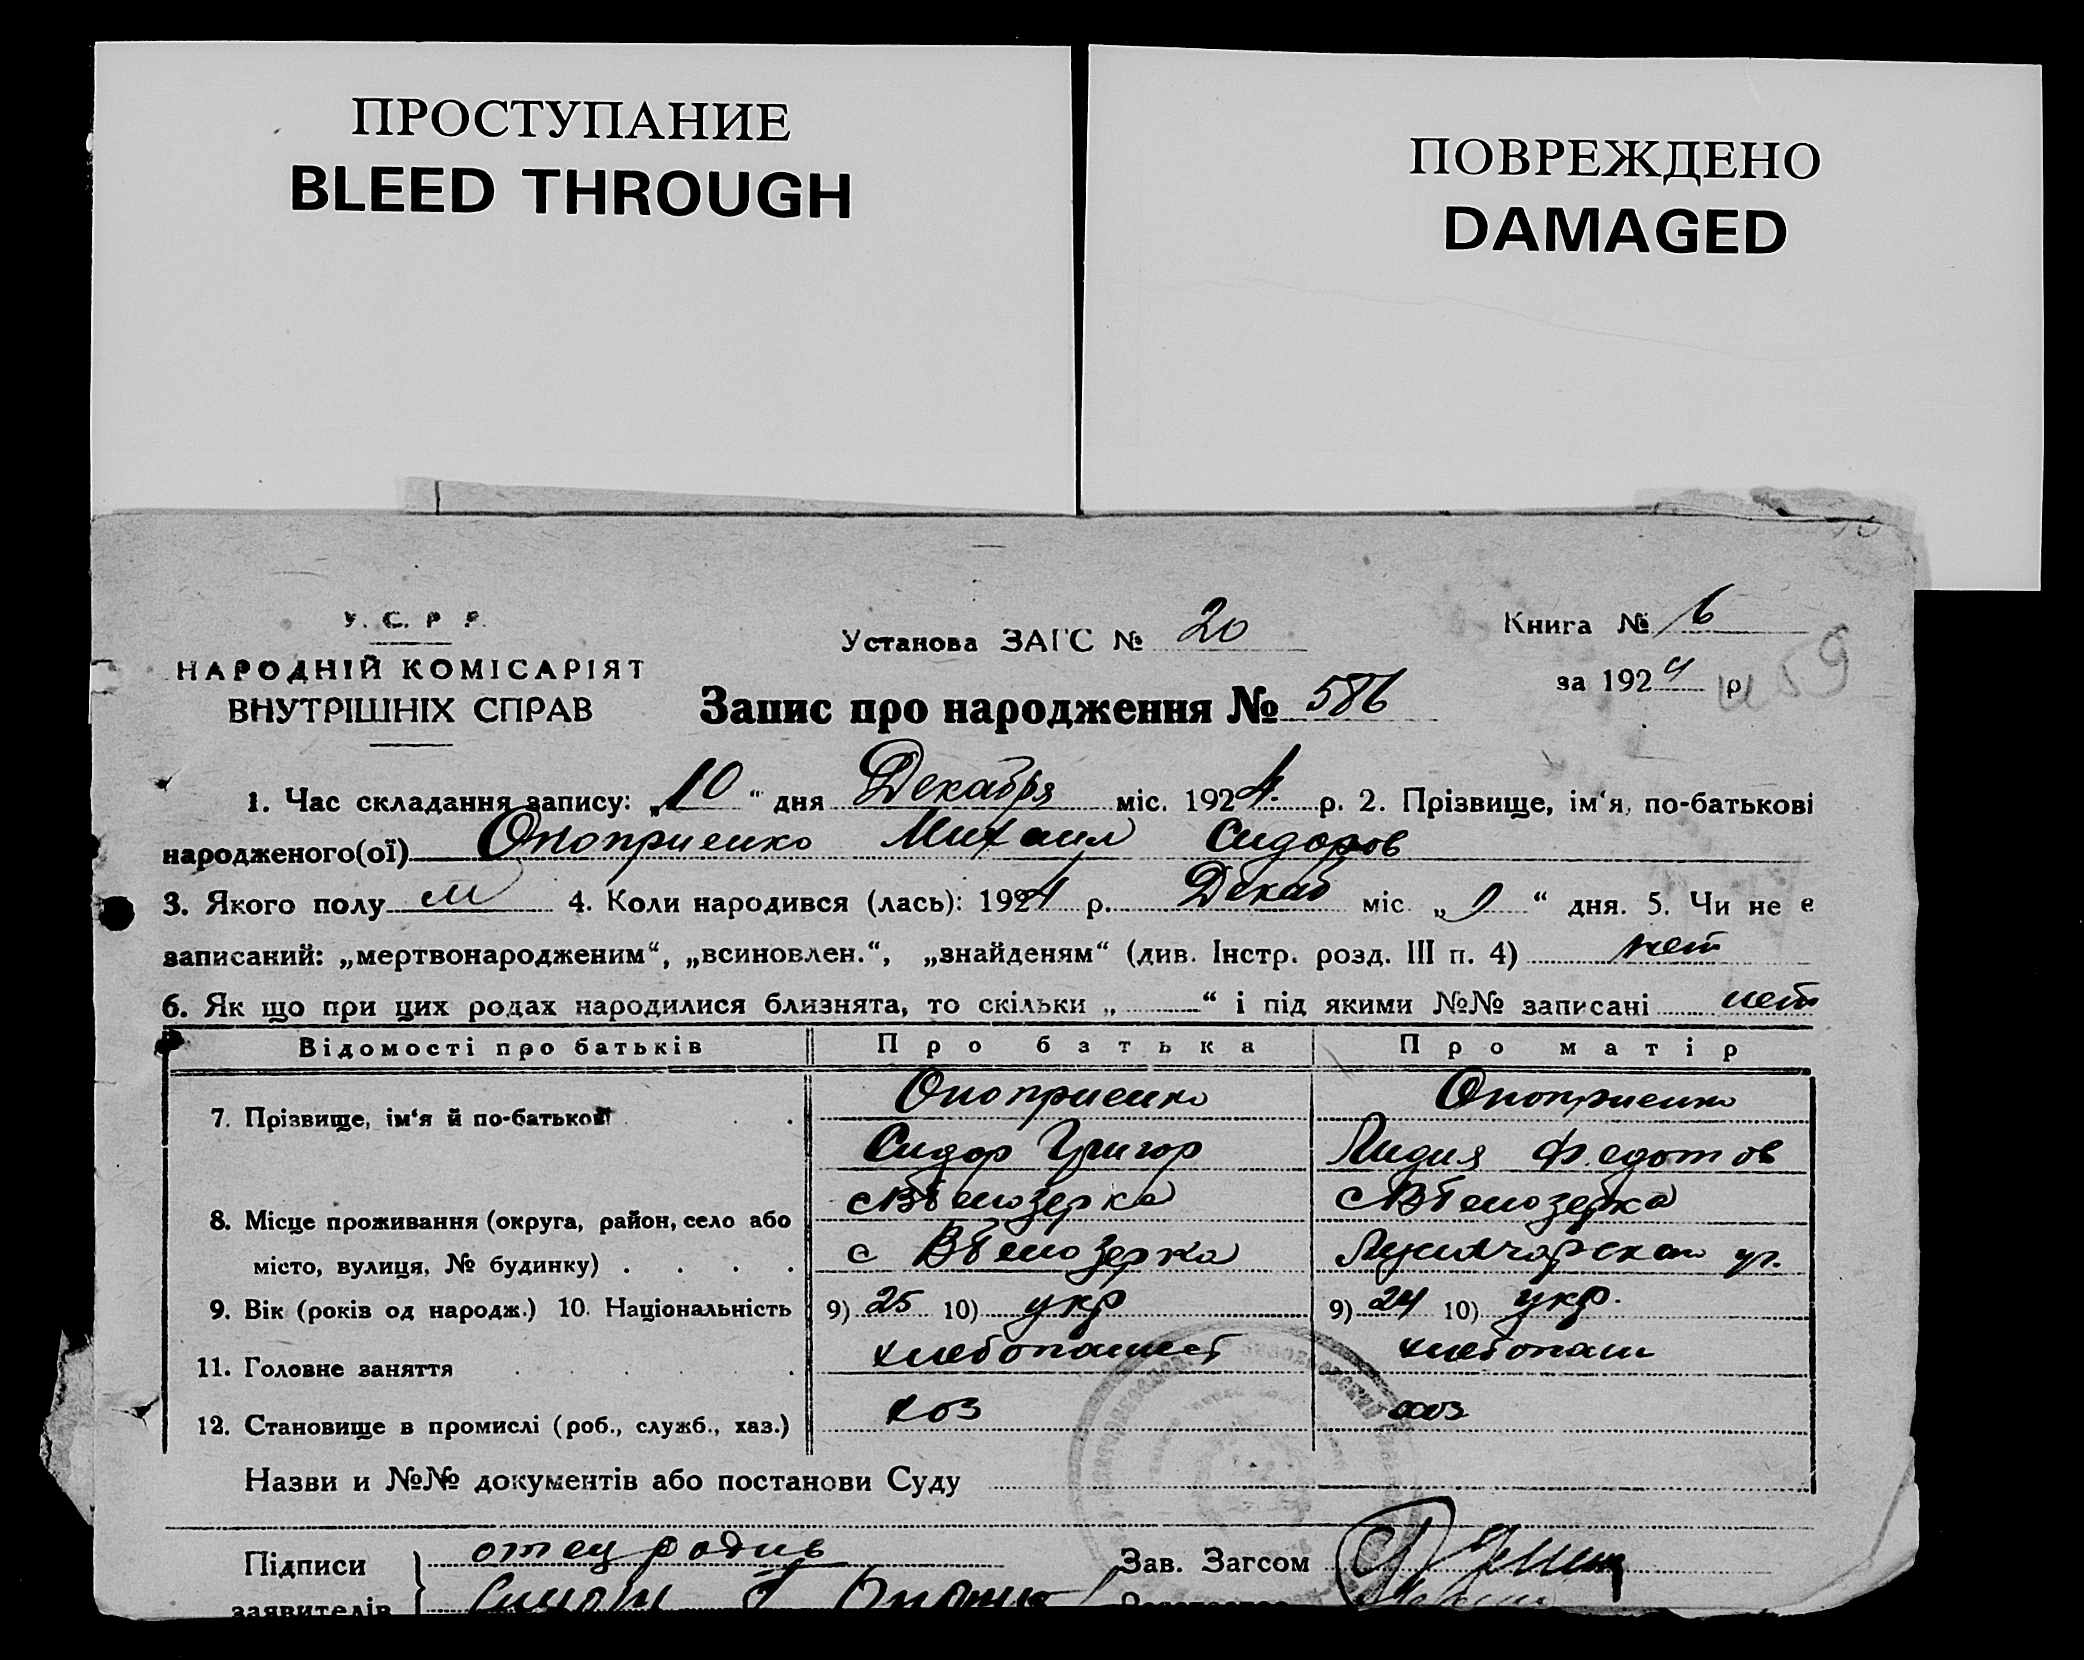 ПРОСТУПАНИЕ
BLEED THROUGH
ПОВРЕЖДЕНО
DAMAGED
У. С. Р. Р.
НАРОДНІЙ КОМІСАРІЯТ
ВНУТРІШНІХ СПРАВ
Установа ЗАГС № 20
Запис про народження № 586
Книга № 6
за 1924 р.
59
1. Час складання запису: „10“ дня Декабря міс. 1924 р. 2. Прізвище, ім‘я, по-батькові
народженого(ої) Оноприенко Михаил Сидоров
3. Якого полу м 4. Коли народився (лась): 1924 р. Декаб міс. „9“ дня. 5. Чи не є
записаний: „мертвонародженим“, „всиновлен.“, „знайденям“ (див. Інстр. розд. III п. 4) нет
6. Як що при цих родах народилися близнята, то скільки „ “ і під якими №№ записані нет
Відомості про батьків Про батька Про матір
7. Прізвище, ім‘я й по-батькові Оноприенко Оноприенко
Сидор Григор Лидия Федотов
8. Місце проживання (округа, район, село або Белозерка Белозерка
місто, вулиця, № будинку) с Белозерка ул.
9. Вік (років од народж.) 10. Національність 9) 25 10) укр 9) 24 10) укр.
11. Головне заняття хлебопашест хлебопаш
12. Становище в промислі (роб., служб., хаз.) хоз хоз
Назви и №№ документів або постанови Суду
Підписи отец родив Зав. Загсом
заявителів